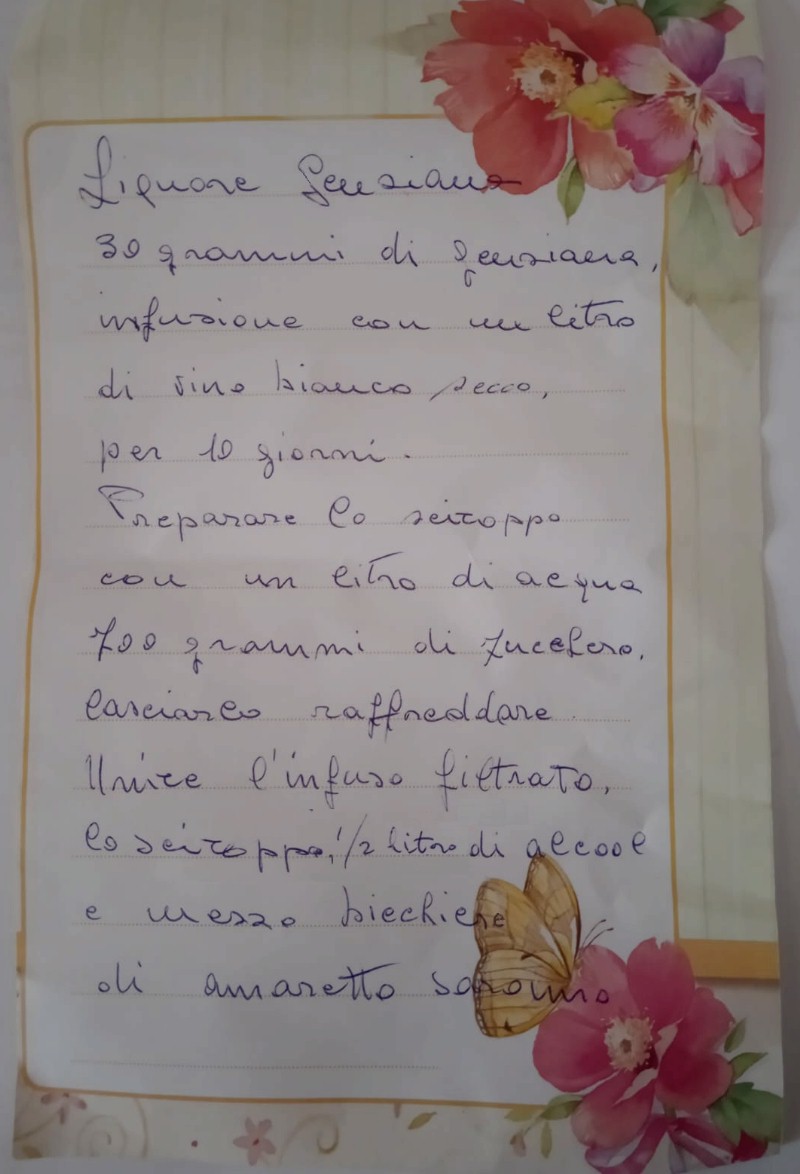 Liquore Genziana
30 grammi di genziana,
infusione con un litro
di vino bianco secco,
per 10 giorni.
Preparare lo sciroppo
con un litro di acqua
700 grammi di zucchero,
lasciarlo raffreddare
Unire l'infuso filtrato,
lo sciroppo, 1/2 litro di alcool
e mezzo bicchiere
di amaretto saronno